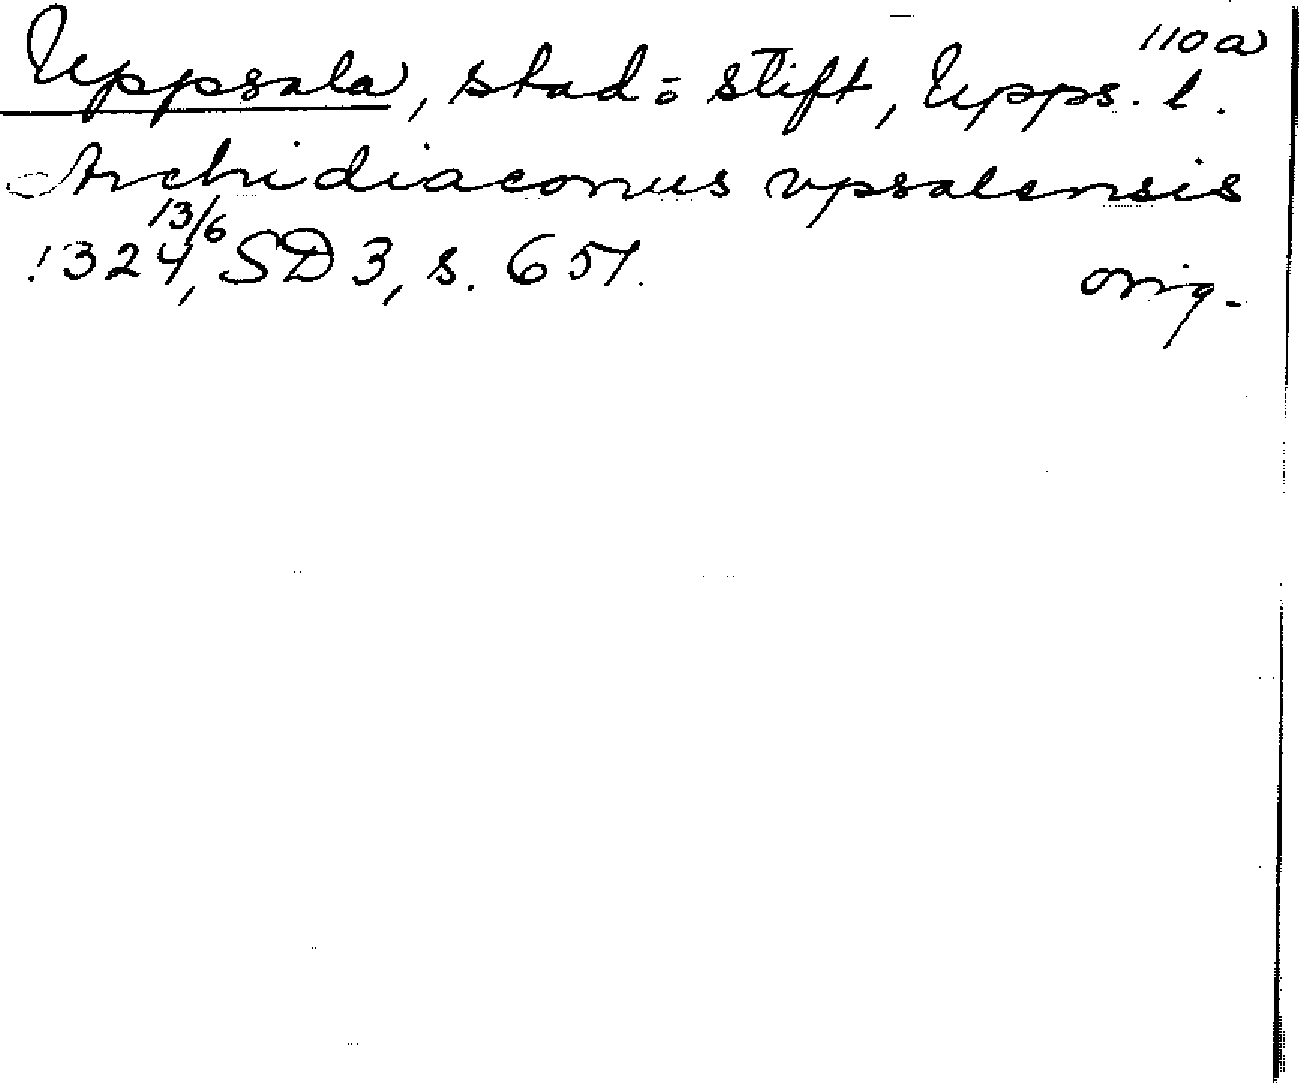 110a
Uppsala, stad = stift, Upps. l.
Archidiaconus vpsalensis
1324 13/6, SD 3, s. 651.
orig.